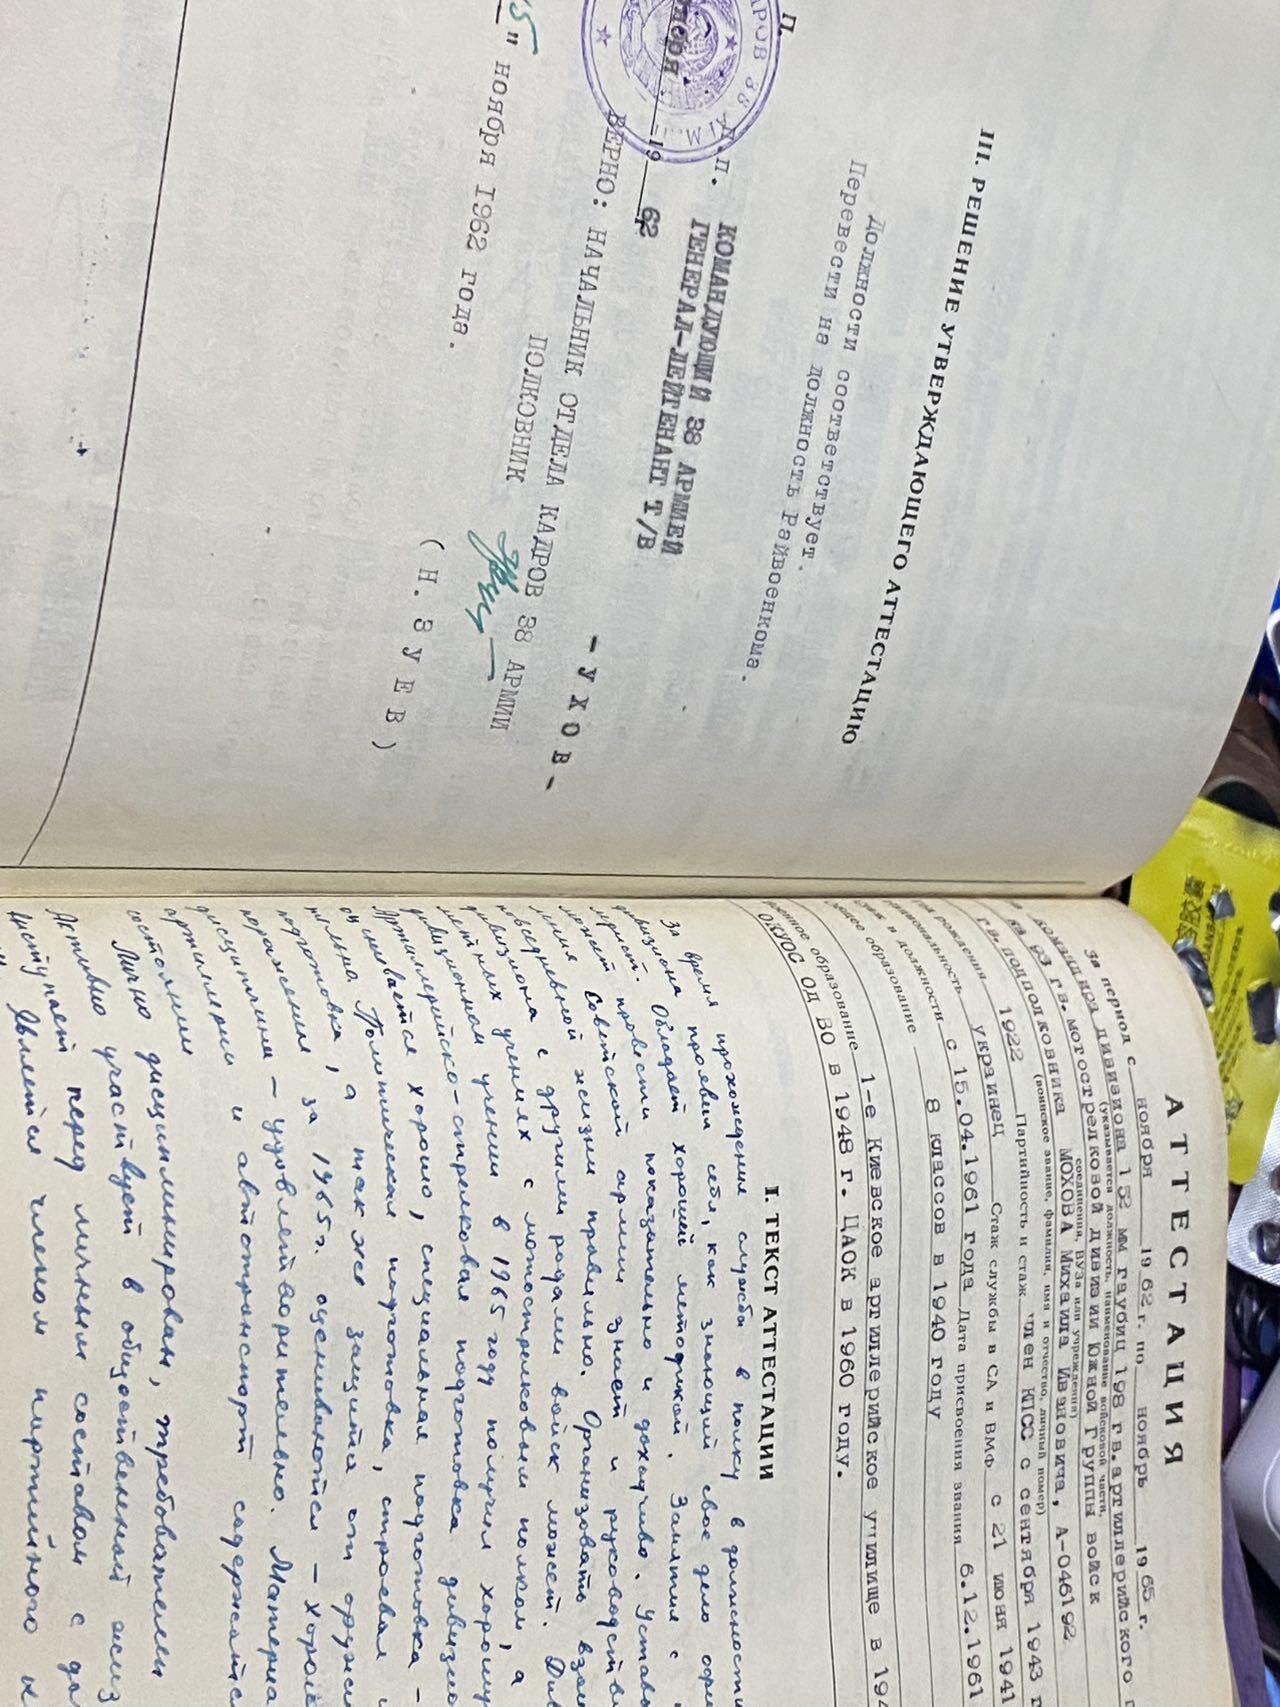 III. РЕШЕНИЕ УТВЕРЖДАЮЩЕГО АТТЕСТАЦИЮ
Должности соответствует.
Перевести на должность Райвоенкома.
П.
п.п. КОМАНДУЮЩИЙ 38 АРМИЕЙ
ГЕНЕРАЛ-ЛЕЙТЕНАНТ Т/В
- У Х О В -
19 62
ВЕРНО: НАЧАЛЬНИК ОТДЕЛА КАДРОВ 38 АРМИИ
ПОЛКОВНИК
( Н. З У Е В )
" ноября 1962 года.
АТТЕСТАЦИЯ
За период с ноября 1962 г. по ноябрь 1965 г.
командира дивизиона 152 мм гаубиц 198 гв.артиллерийского
(указывается должность, наименование войсковой части,
93 гв.мотострелковой дивизии Южной Группы войск
соединения, ВУЗа или учреждения)
гв.подполковника МОХОВА Михаила Ивановича, А-046192
(воинское звание, фамилия, имя и отчество, личный номер)
рождения 1922 Партийность и стаж член КПСС с сентября 1943
национальность украинец Стаж службы в СА и ВМФ с 21 июня 1941
в должности с 15.04.1961 года Дата присвоения звания 6.12.1961
образование 8 классов в 1940 году
образование 1-е Киевское артиллерийское училище в
ОКУОС Од ВО в 1948 г. ЦАОК в 1960 году.
I. ТЕКСТ АТТЕСТАЦИИ
За время прохождения службы в полку в должности
дивизиона проявил себя, как знающий свое дело
Обладает хорошей методикой. Занятие с
может провести показательно и доходчиво.
Советской армии знает и руководств
жизни правильно. Организовать
дивизиона с другими родами войск может.
учениях с мотострелковым полком, а
дивизионном учении в 1965 году получил
Артиллерийско-стрелковая подготовка
оценивается хорошо, специальная подготовка -
Политическая подготовка, строевая
подготовка, а так же защита от
поражения за 1965 г. оцениваются -
дисциплина - удовлетворительно.
артиллерии и автотранспорт
состоянии
Лично дисциплинирован, требователен
Активно участвует в общественной
Выступает перед личным составом с
Является членом партийного